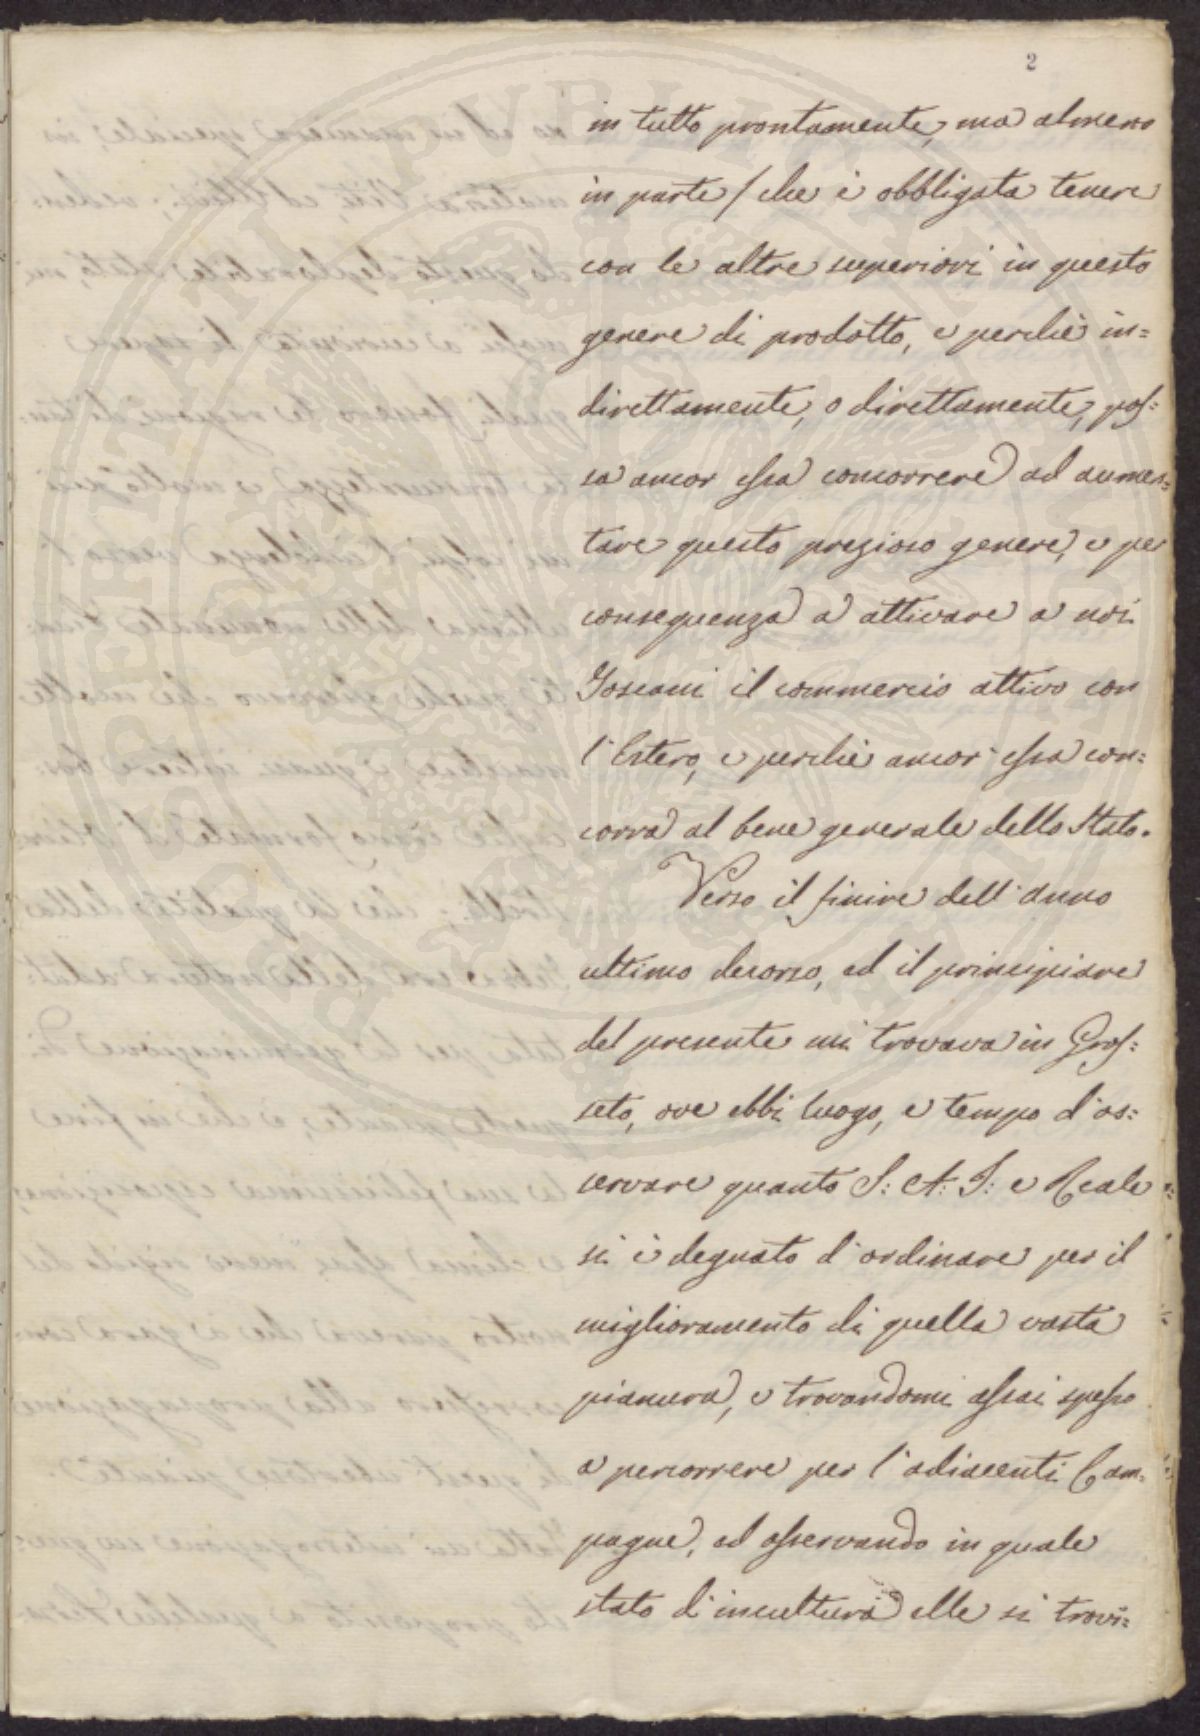 2
in tutto prontamente, ma almeno
in parte / che è obbligata tenere
con le altre superiori in questo
genere di prodotto, e perchè in=
direttamente, o direttamente, pos=
sa ancor essa concorrere ad aumen=
tare questo prezioso genere, e per
conseguenza a attivare a noi
Toscani il commercio attivo con
l'Estero, e perchè ancor' essa con=
corra al bene generale dello Stato.
Verso il finire dell'anno
ultimo decorso, ed il principiare
del presente mi trovava in Gros=
seto, ove ebbi luogo, e tempo d'os=
servare quanto S: A: I: e Reale
si è degnato d'ordinare per il
miglioramento di quella vasta
pianura, e trovandomi assai spesso
a percorrere per l'adiacenti Cam=
pagne, ed osservando in quale
stato d'incultura elle si trovi=